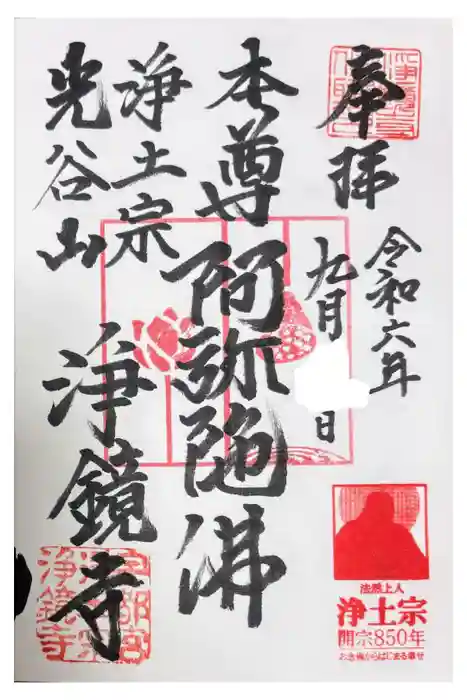 奉拝
令和六年
九月 日
本尊 阿弥陀佛
浄土宗
光谷山
浄鏡寺
法然上人
浄土宗
開宗850年
お念佛からはじまる幸せ